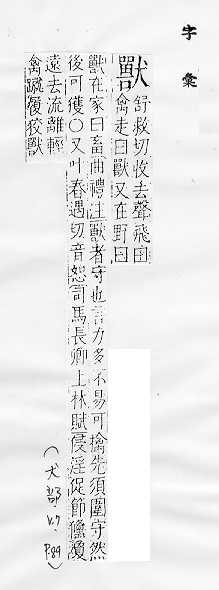 字彙
獸
舒救切收去聲飛曰
禽走曰獸又在野曰
獸在家曰畜曲禮注獸者守也言力多不易可擒先須圍守然
後可獲○又叶春遇切音恕司馬長卿上林賦侵淫促節儵敻
遠去流離輕
禽蹴履狡獸
(犬部 V.7 P.99)